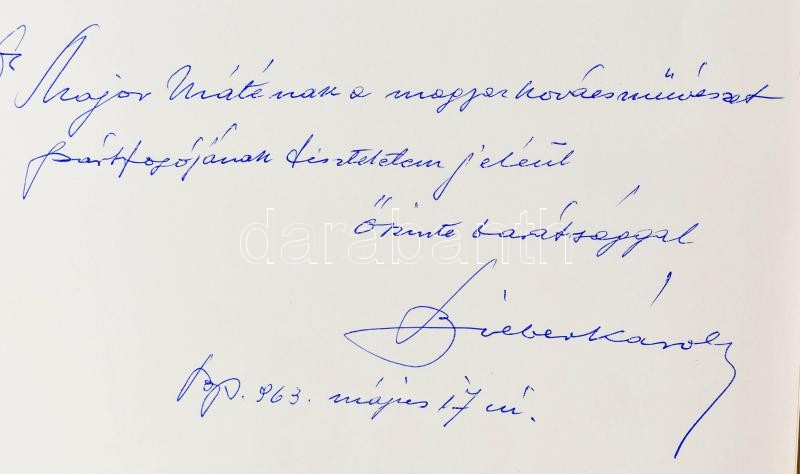 Major Máténak a magyar kovácsművészet
pártfogójának tiszteletem jeléül
Őszinte barátsággal
Bieber Károly
Bp. 963. május 17-én.
darabanth